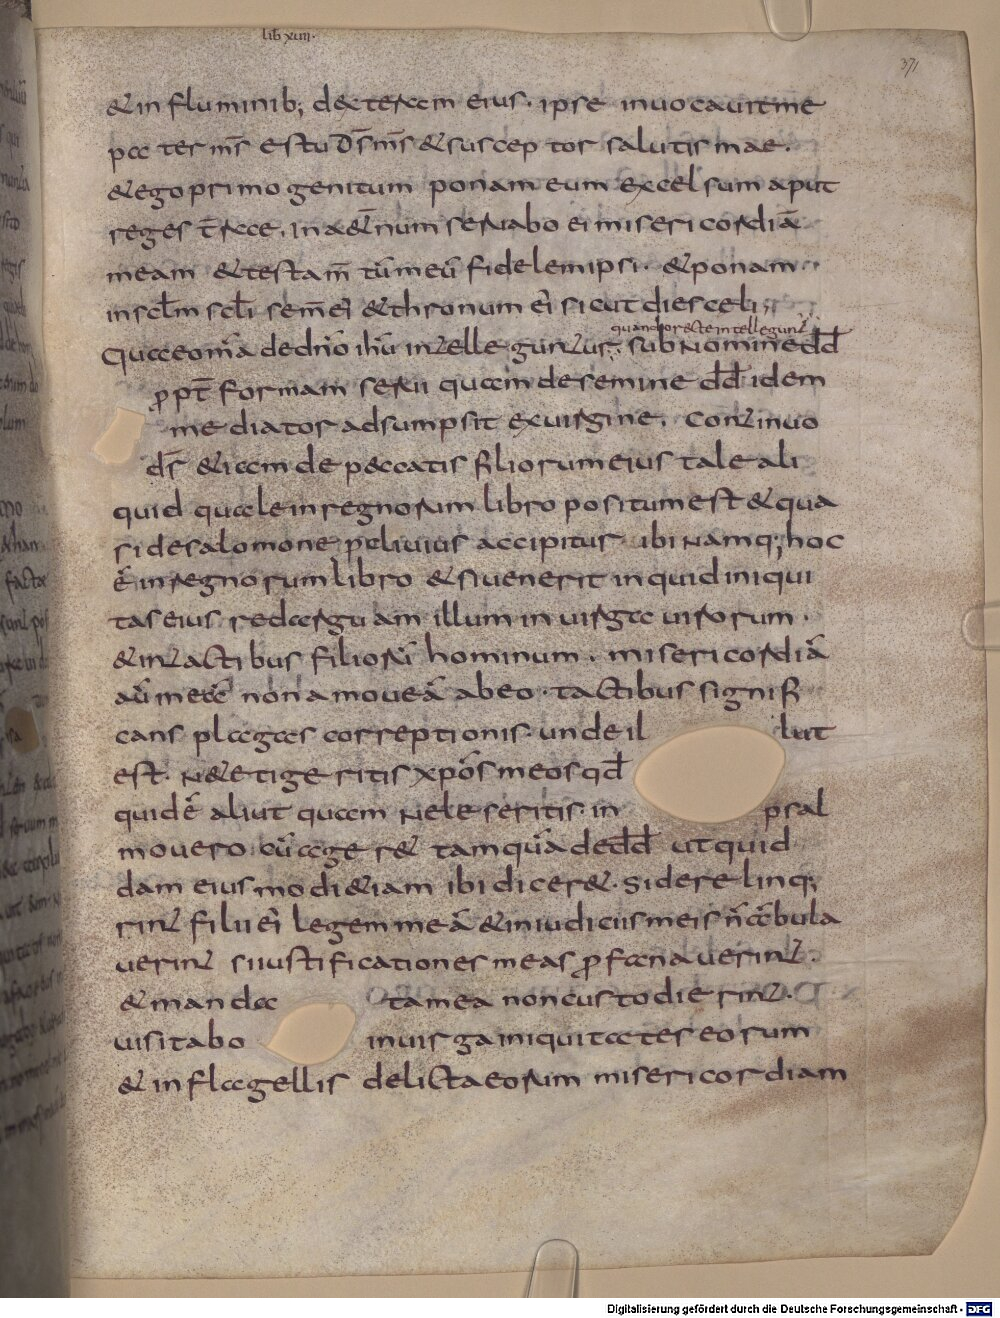 lib xuii·
371
&in fluminib; dexteram eius· ipse inuocauit me
pater m̄s es tu d̄s m̄s & susceptor salutis mae·
& ego primogenitum ponam eum excelsum aput
reges t̄rae· in ae&̄num seruabo ei misericordiā
meam & testam̄ tū meū fidelem ipsi· & ponam
in sc̄lm sc̄li sem̄ ei & thronum ei sicut dies celi;
quando recte intelleguntur
Quae om̄a de dn̄o ihū intelleguntur· sub nomine dd̄
ꝓpt̄ formam serui quam de semine dd̄ idem
mediator adsumpsit ex uirgine· Continuo
dr̄ &iam de peccatis filiorum eius tale ali
quid quale in regnorum libro positum est & qua
si de salomone p̱cliuius accipitur ibi namq; hoc
ē in regnorum libro & si uenerit inquid iniqui
tas eius redarguam illum in uirga uirorum·
& in tactibus filiorū hominum· misericordiā
aū meā non amoueā ab eo· tactibus signifi
cans plagas correptionis· unde il lut
est· Ne tigeritis xp̄os meos qd̄
quid ē aliut quam ne leseritis· in psal
mo uero cū ager& tamquā de dd̄ ut quid
dam eiusmodi &iam ibi dicer&· Si derelinq;
rint filii ei legem meā & in iudiciis meis n̄ ābula
uerint si iustificationes meas ꝓfanauerint·
& manda ta mea non custodierint·
uisitabo in uirga iniquitates eorum
& in flagellis delicta eorum misericordiam
Digitalisierung gefördert durch die Deutsche Forschungsgemeinschaft - DFG